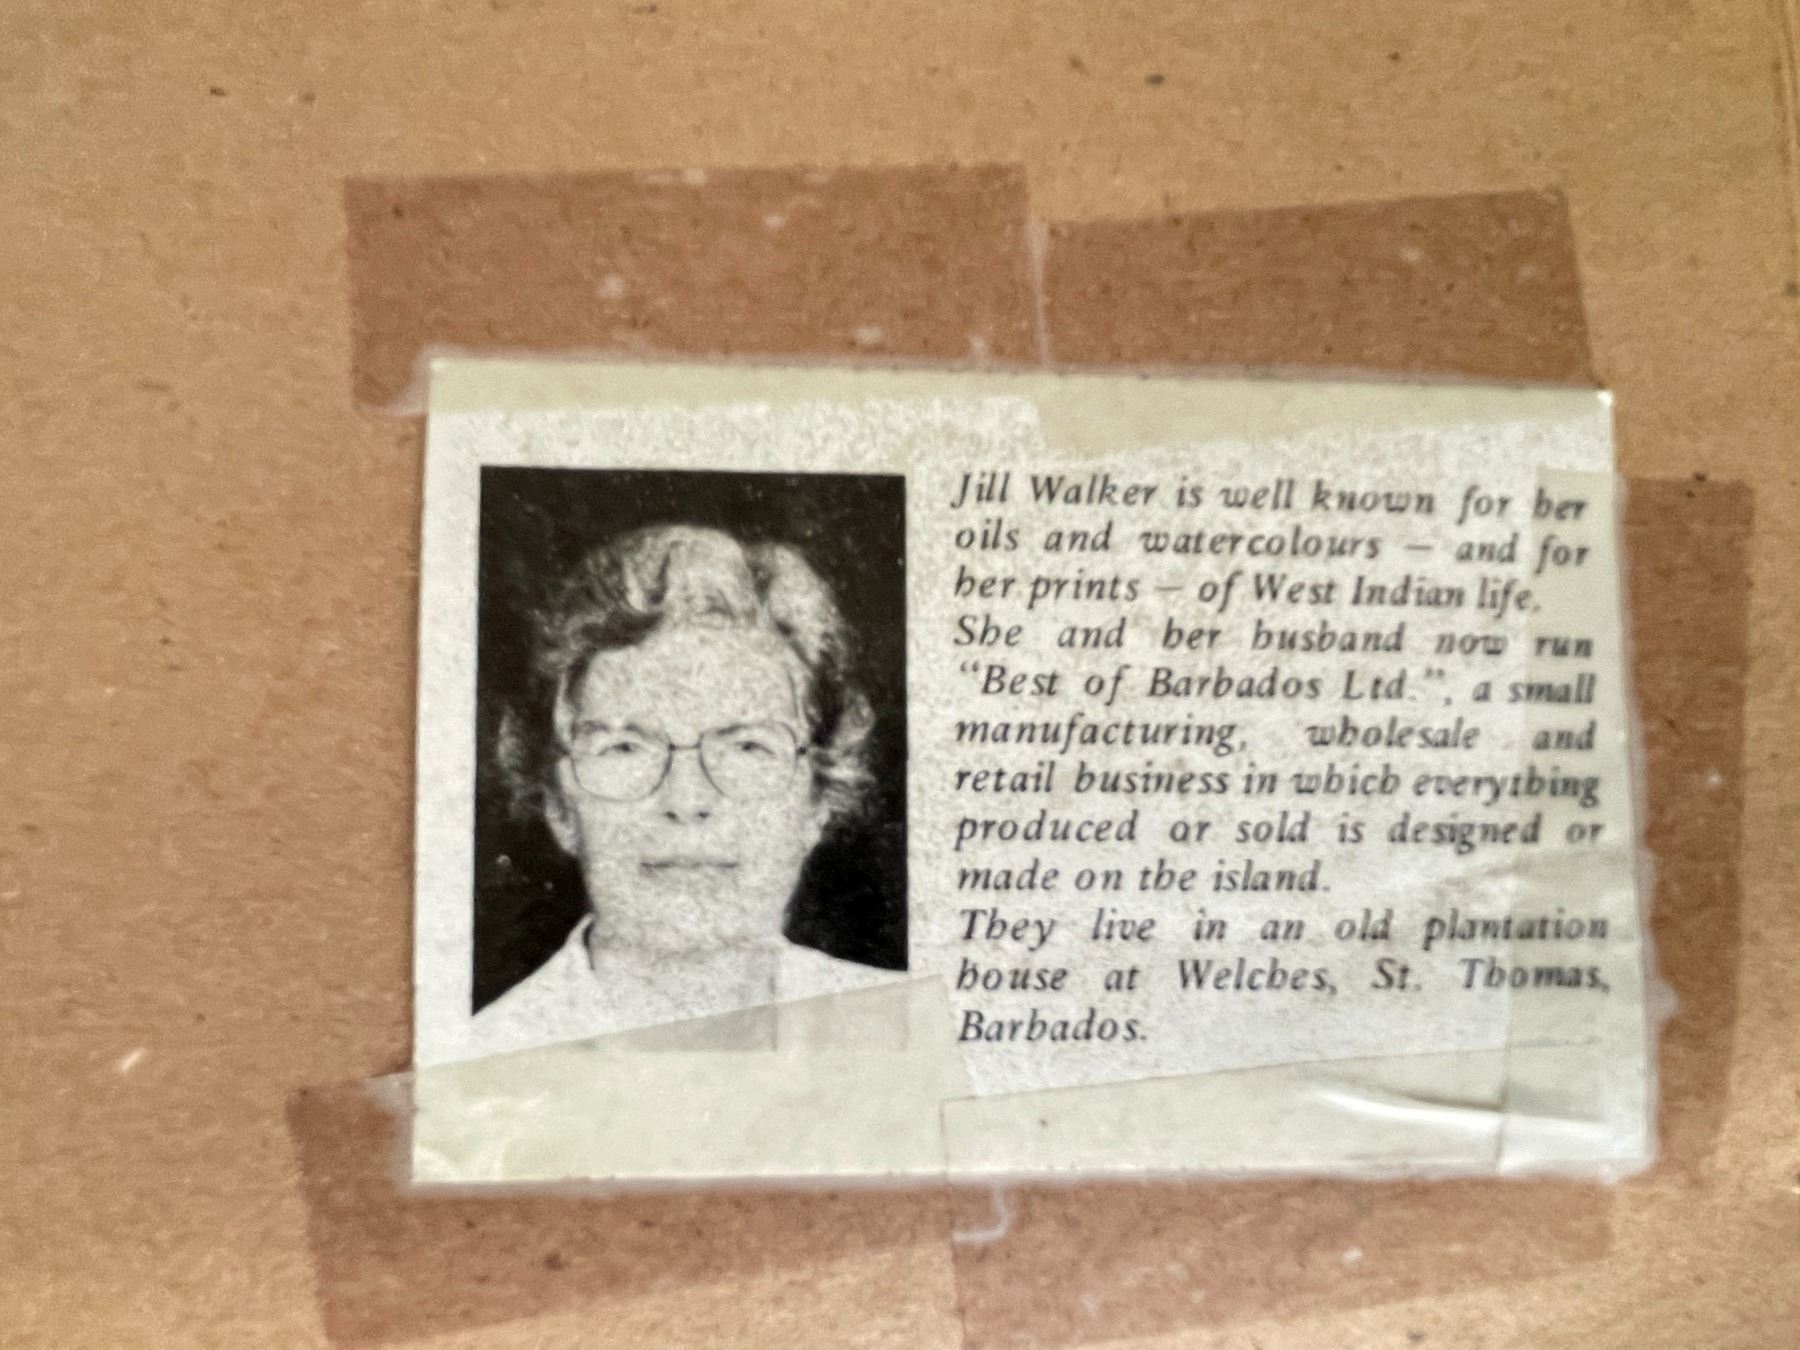 Jill Walker is well known for her
oils and watercolours — and for
her prints — of West Indian life.
She and her husband now run
“Best of Barbados Ltd.”, a small
manufacturing, wholesale and
retail business in which everything
produced or sold is designed or
made on the island.
They live in an old plantation
house at Welches, St. Thomas,
Barbados.